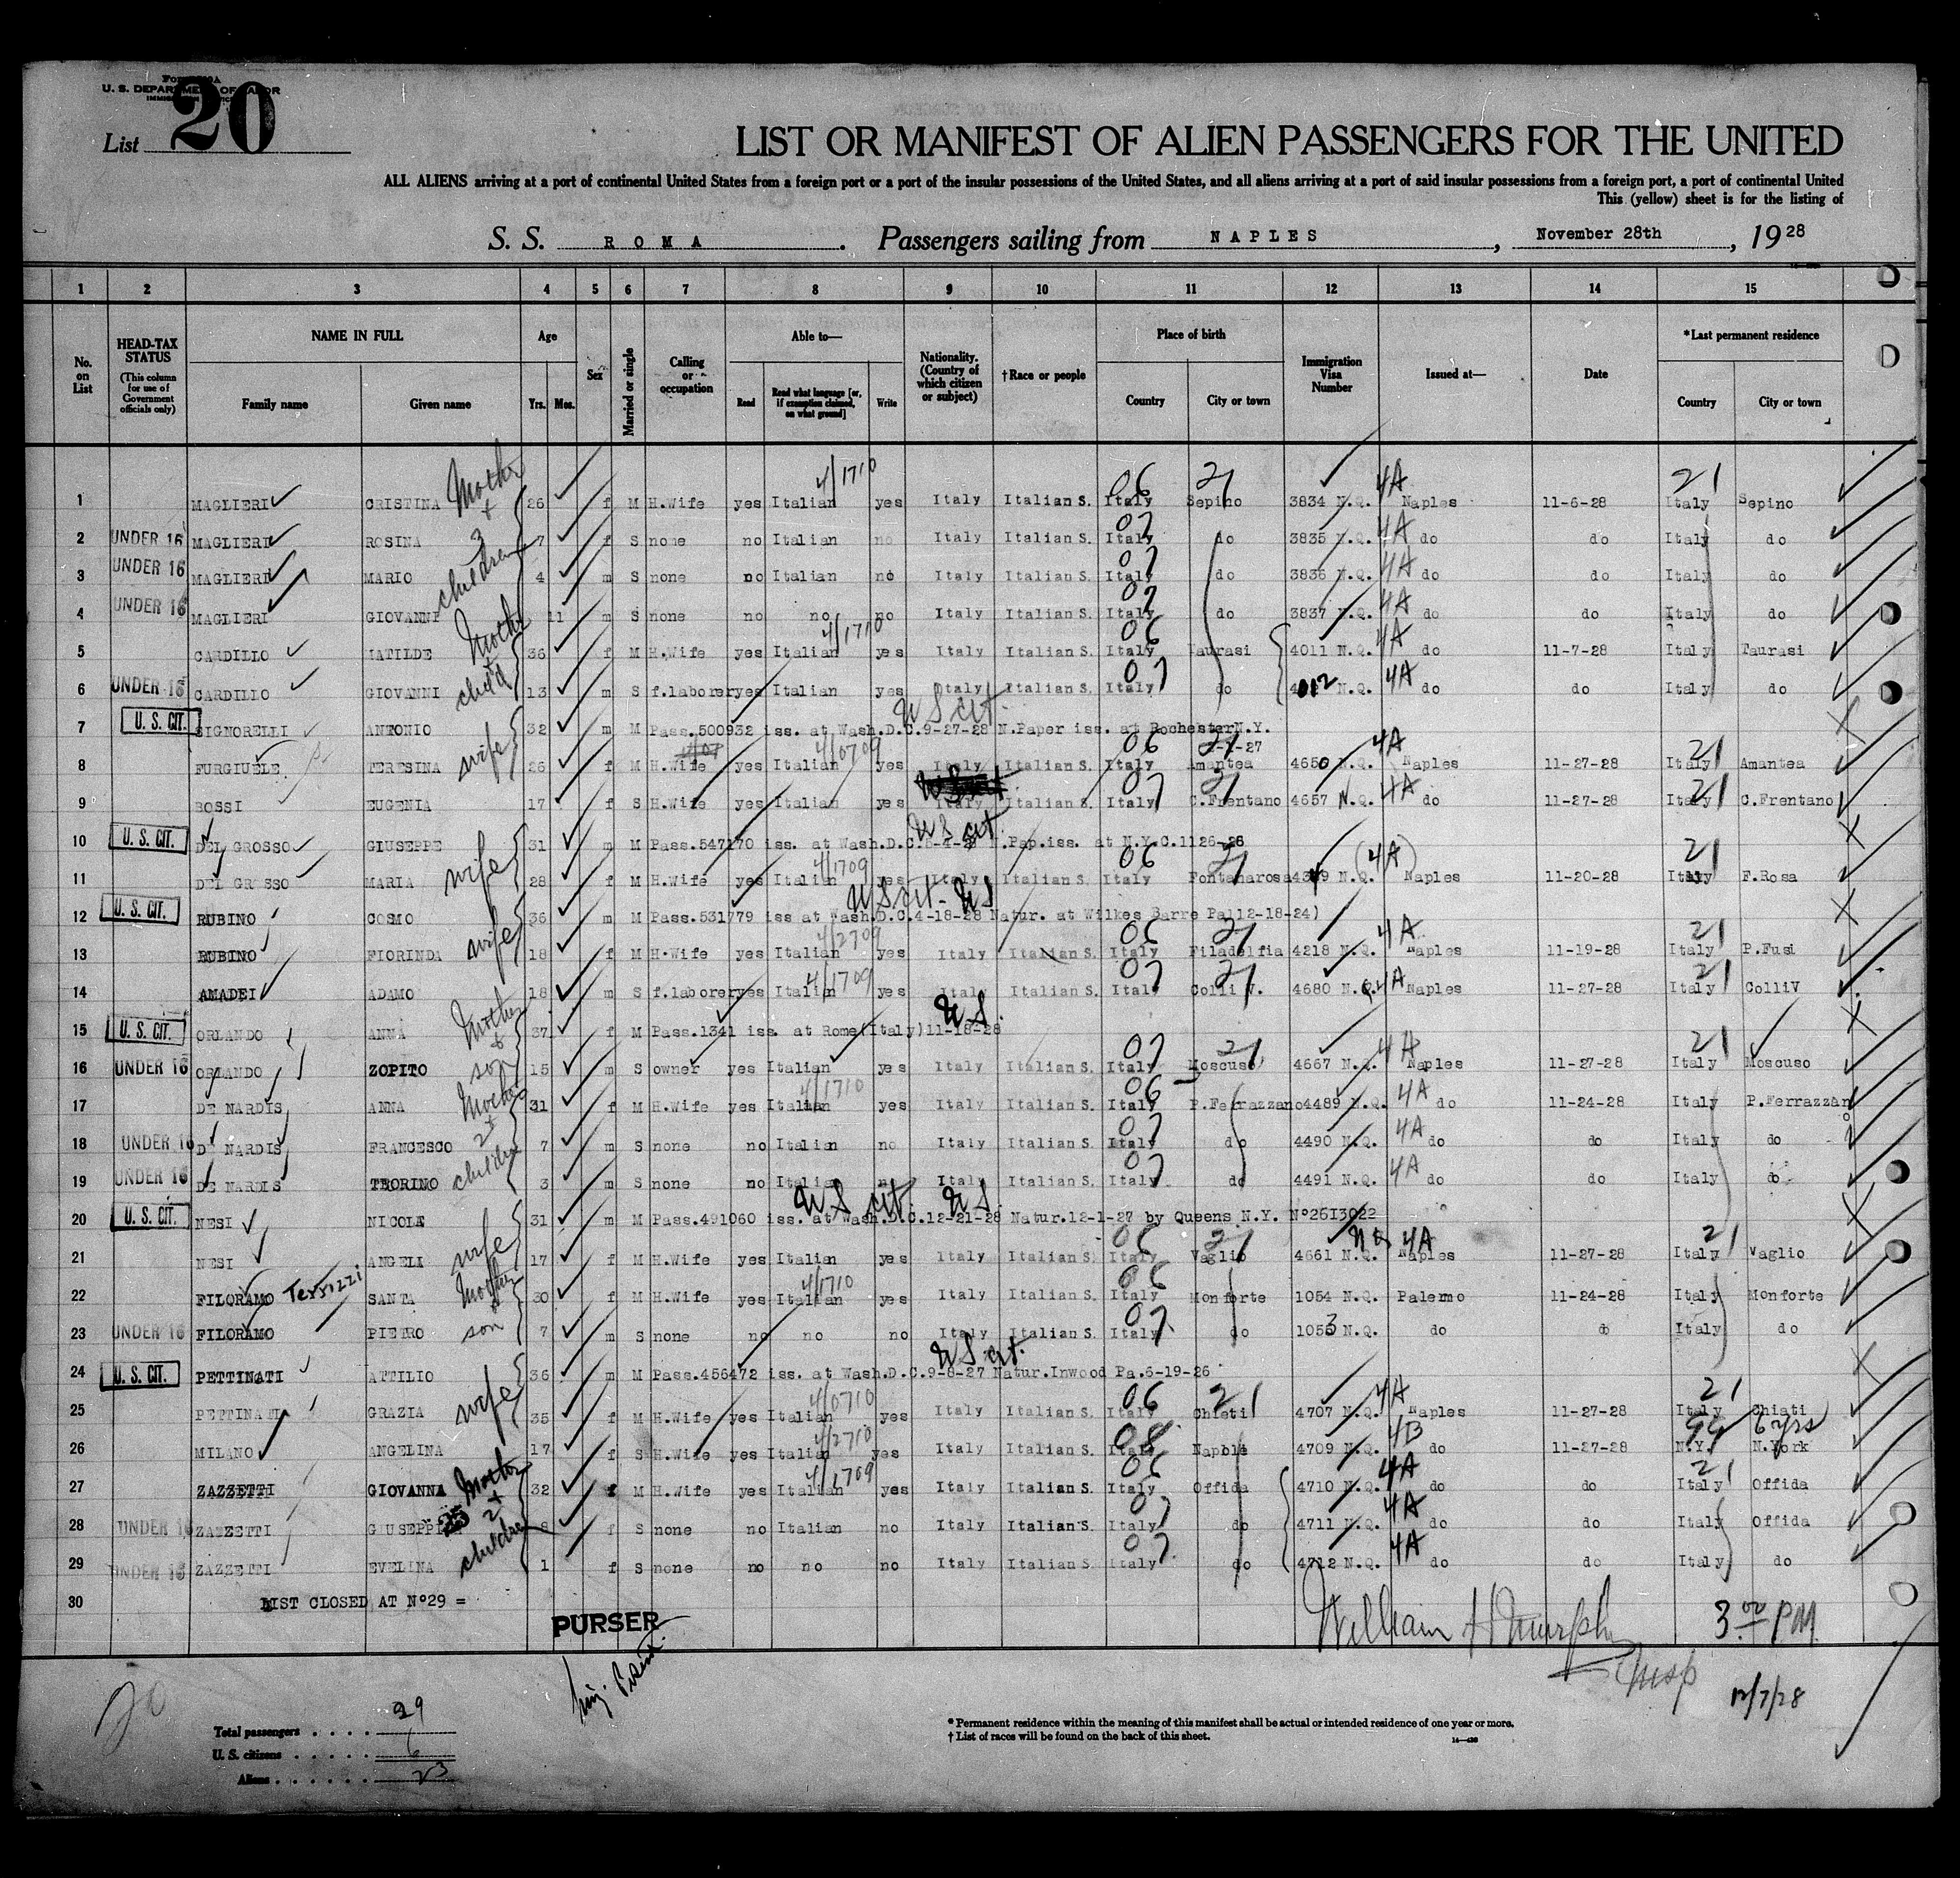 Form 500A
U. S. DEPARTMENT OF LABOR
IMMIGRATION SERVICE
List 20
LIST OR MANIFEST OF ALIEN PASSENGERS FOR THE UNITED
ALL ALIENS arriving at a port of continental United States from a foreign port or a port of the insular possessions of the United States, and all aliens arriving at a port of said insular possessions from a foreign port, a port of continental United
This (yellow) sheet is for the listing of
S. S. ROMA. Passengers sailing from NAPLES, November 28th, 1928
1 2 3 4 5 6 7 8 9 10 11 12 13 14 15
No. on List HEAD-TAX STATUS (This column for use of Government officials only) NAME IN FULL Family name Given name Age Yrs. Mos. Sex Married or single Calling or occupation Able to— Read Read what language [or, if exemption claimed, on what ground] Write Nationality. (Country of which citizen or subject) †Race or people Place of birth Country City or town Immigration Visa Number Issued at— Date *Last permanent residence Country City or town
Mother + 3 children 4/1710 06 21 4A 21
1 MAGLIERI CRISTINA 26 f M H.Wife yes Italian yes Italy Italian S. Italy Sepino 3834 N.Q. Naples 11-6-28 Italy Sepino
2 UNDER 16 MAGLIERI ROSINA 7 f S none no Italian no Italy Italian S. Italy do 3835 N.Q. 4A do do Italy do
3 UNDER 16 MAGLIERI MARIO 4 m S none no Italian no Italy Italian S. Italy do 3836 N.Q. 4A do do Italy do
4 UNDER 16 MAGLIERI GIOVANNI 11 m S none no no no Italy Italian S. Italy do 3837 N.Q. 4A do do Italy do
Mother child 4/1710 06
5 CARDILLO MATILDE 36 f M H.Wife yes Italian yes Italy Italian S. Italy Taurasi 4011 N.Q. 4A do 11-7-28 Italy Taurasi
6 UNDER 16 CARDILLO GIOVANNI 13 m S f.laborer yes Italian yes Italy Italian S. Italy do 4012 N.Q. 4A do do Italy do
U S cit.
7 U. S. CIT. SIGNORELLI ANTONIO 32 m M Pass.500932 iss. at Wash.D.C.9-27-28 N.Paper iss. at Rochester N.Y.
wife 4/0709 06 21 4A 21
8 FURGIUELE TERESINA 26 f M H.Wife yes Italian yes Italy Italian S. Italy Amantea 4650 N.Q. Naples 11-27-28 Italy Amantea
9 ROSSI EUGENIA 17 f S H.Wife yes Italian yes Italy Italian S. Italy C.Frentano 4657 N.Q. 4A do 11-27-28 Italy C.Frentano
U S cit.
10 U. S. CIT. DEL GROSSO GIUSEPPE 31 m M Pass.547170 iss. at Wash.D.C. N.Pap.iss. at N.Y.C.1126-26
wife 4/1709 06 21 (4A) 21
11 DEL GROSSO MARIA 28 f M H.Wife yes Italian yes Italy Italian S. Italy Fontanarosa N.Q. Naples 11-20-28 Italy F.Rosa
U S cit - U S
12 U. S. CIT. RUBINO COSMO 36 m M Pass.531779 iss at Wash.D.C.4-18-28 Natur. at Wilkes Barre Pa 12-18-24)
wife 4/2709 06 21 4A 21
13 RUBINO FIORINDA 18 f M H.Wife yes Italian yes Italy Italian S. Italy Filadelfia 4218 N.Q. Naples 11-19-28 Italy P.Fusi
4/1709 07 21 4A 21
14 AMADEI ADAMO 18 m S f.laborer yes Italian yes Italy Italian S. Italy Colli V. 4680 N.Q. Naples 11-27-28 Italy ColliV
Mother + son U S.
15 U. S. CIT. ORLANDO ANNA 37 f M Pass.1341 iss. at Rome(Italy)11-18-28
07 21 4A 21
16 UNDER 16 ORLANDO ZOPITO 15 m S owner yes Italian yes Italy Italian S. Italy Moscuso 4667 N.Q. Naples 11-27-28 Italy Moscuso
Mother 2+ children 4/1710 06
17 DE NARDIS ANNA 31 f M H.Wife yes Italian yes Italy Italian S. Italy P.Ferrazzano 4489 N.Q. 4A do 11-24-28 Italy P.Ferrazzano
18 UNDER 16 DE NARDIS FRANCESCO 7 m S none no Italian no Italy Italian S. Italy do 4490 N.Q. 4A do do Italy do
19 UNDER 16 DE NARDIS TEORINO 3 m S none no Italian no Italy Italian S. Italy do 4491 N.Q. 4A do do Italy do
U S cit U S.
20 U. S. CIT. NESI NICOLE 31 m M Pass.491060 iss. at Wash.D.C.12-21-28 Natur.12-1-27 by Queens N.Y. N°2613022
wife 06 21 NQ 4A 21
21 NESI ANGELA 17 f M H.Wife yes Italian yes Italy Italian S. Italy Vaglio 4661 N.Q. Naples 11-27-28 Italy Vaglio
Mother + son 4/1710 06
22 FILORAMO Terrizzi SANTA 30 f M H.Wife yes Italian yes Italy Italian S. Italy Monforte 1054 N.Q. Palermo 11-24-28 Italy Monforte
23 UNDER 16 FILORAMO PIETRO 7 m S none no no no Italy Italian S. Italy do 1053 N.Q. do do Italy do
U S cit.
24 U. S. CIT. PETTINATI ATTILIO 36 m M Pass.456472 iss. at Wash.D.C.9-8-27 Natur.Inwood Pa.6-19-26
wife 4/0710 06 21 4A 21
25 PETTINATI GRAZIA 35 f M H.Wife yes Italian yes Italy Italian S. Italy Chieti 4707 N.Q. Naples 11-27-28 Italy Chiati
4/2710 08 4B 99 6 yrs
26 MILANO ANGELINA 17 f S H.Wife yes Italian yes Italy Italian S. Italy Napole 4709 N.Q. do 11-27-28 N.Y. N.York
Mother 2+ children 4/1709 06 4A 21
27 ZAZZETTI GIOVANNA 32 f M H.Wife yes Italian yes Italy Italian S. Italy Offida 4710 N.Q. do do Italy Offida
28 UNDER 16 ZAZZETTI GIUSEPPI 8 f S none no Italian no Italy Italian S. Italy do 4711 N.Q. 4A do do Italy Offida
29 UNDER 16 ZAZZETTI EVELINA 1 f S none no no no Italy Italian S. Italy do 4712 N.Q. 4A do do Italy do
30 LIST CLOSED AT N°29 =
PURSER
William H Murphy
Insp
3 00 PM
12/7/28
20
Total passengers . . . . 29
U. S. citizens . . . . . 6
Aliens . . . . . . 23
* Permanent residence within the meaning of this manifest shall be actual or intended residence of one year or more.
† List of races will be found on the back of this sheet.